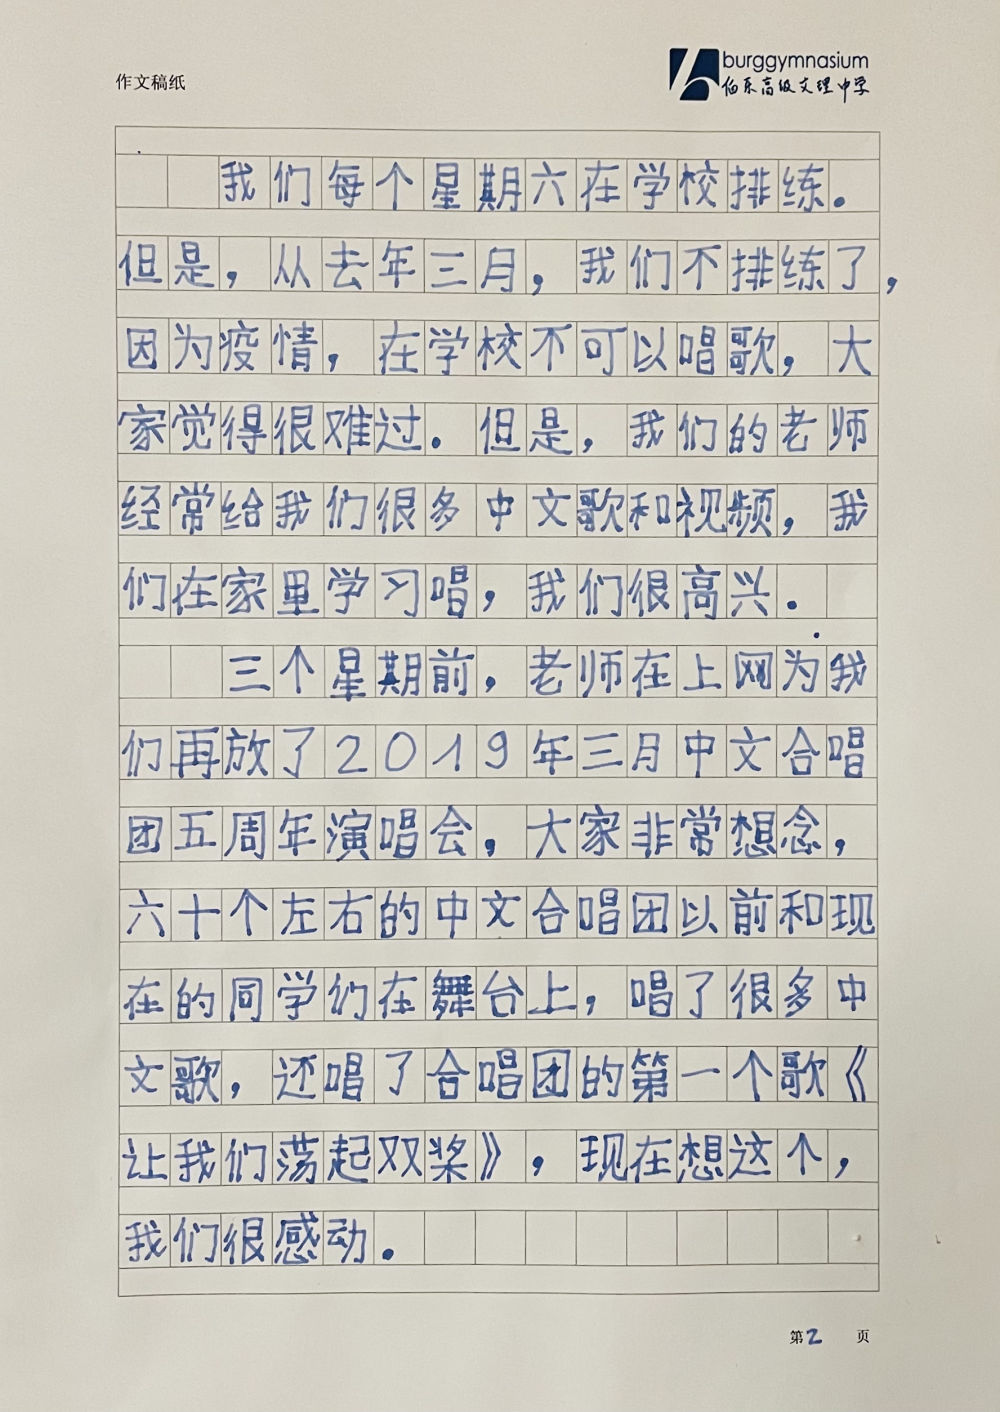 作文稿纸
burggymnasium
伯乐高级文理中学
我们每个星期六在学校排练.
但是,从去年三月,我们不排练了,
因为疫情,在学校不可以唱歌,大
家觉得很难过.但是,我们的老师
经常给我们很多中文歌和视频,我
们在家里学习唱,我们很高兴.
三个星期前,老师在上网为我
们再放了2019年三月中文合唱
团五周年演唱会,大家非常想念,
六十个左右的中文合唱团以前和现
在的同学们在舞台上,唱了很多中
文歌,还唱了合唱团的第一个歌《
让我们荡起双桨》,现在想这个,
我们很感动.
第2页